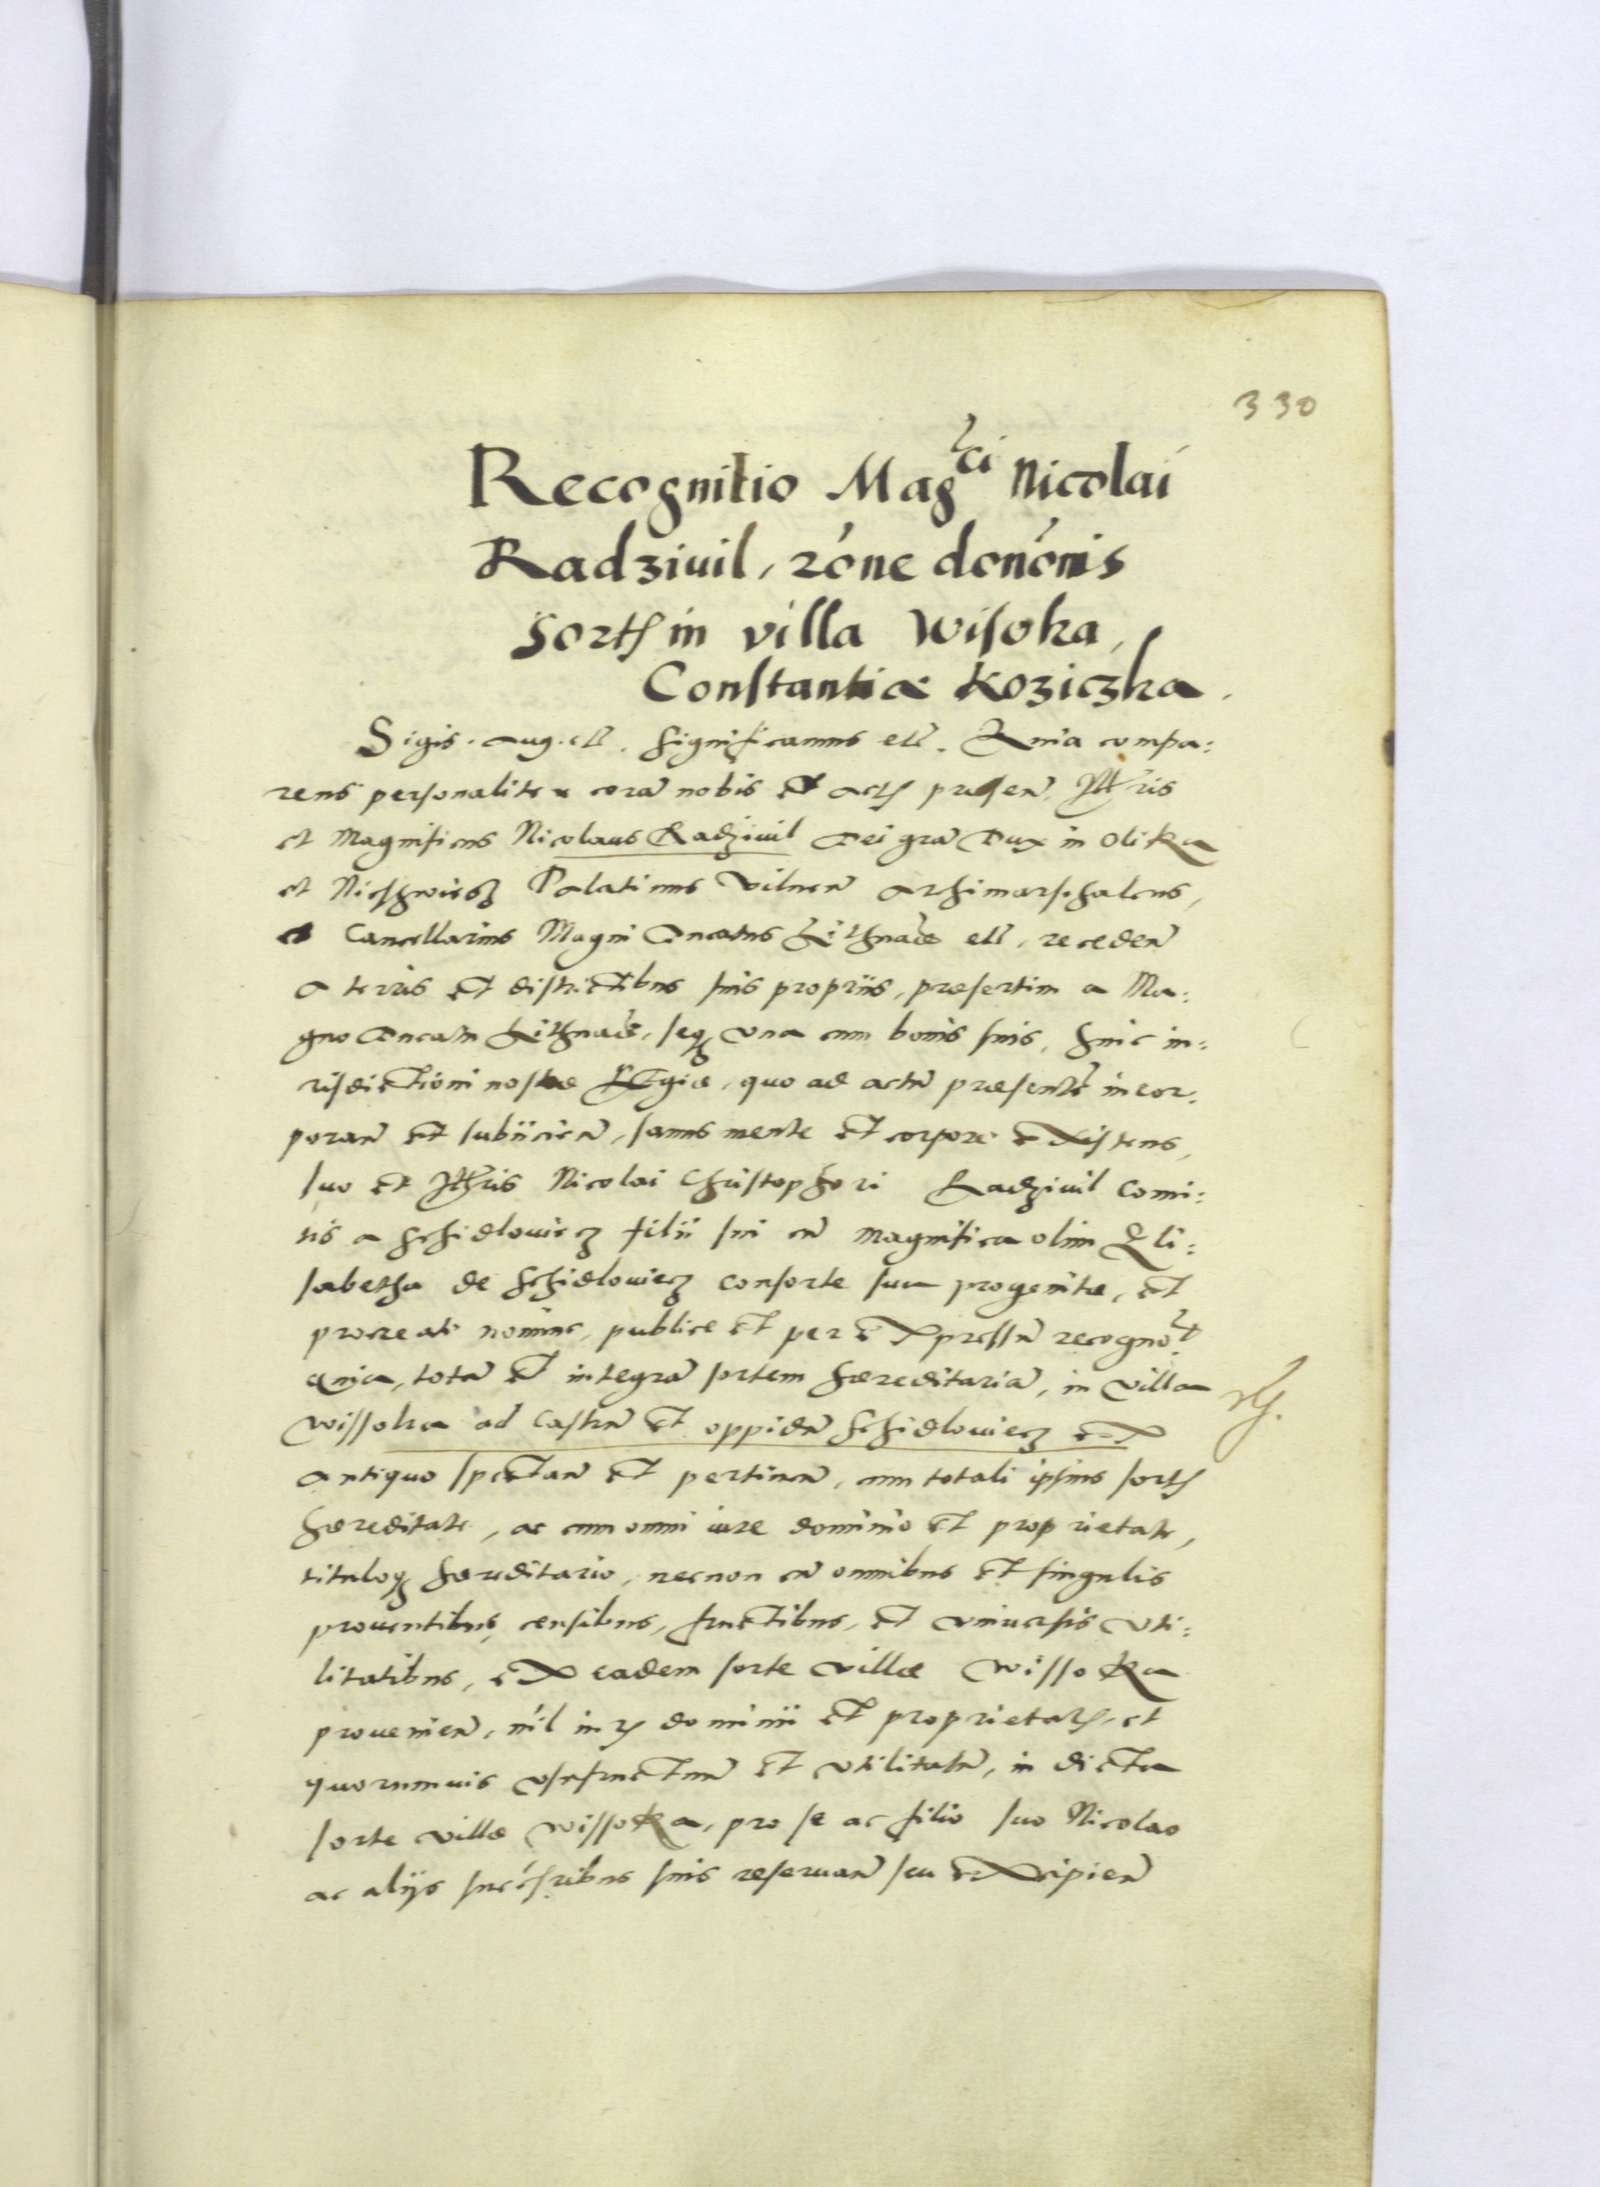 330
Recognitio Mag^ci Nicolai
Radziuil, róne donónis
Sortis in villa Wisoka,
Constantiæ Koziczka.
Sigis. Aug. etc. Significamus etc. Quia compa:
rens personaliter coram nobis et actis præsen. Illris
et Magnificus Nicolaus Radziuil Dei gra Dux in Olika
et Nieschwiesz Palatinus Vilnen Archimarschalcus,
et Cancellarius Magni Ducatus Lithuaniæ etc. receden
a terris et districtibus suis propriis, præsertim a Ma:
gno Ducatu Lithuaniæ, seq3 una cum bonis suis, huic iu:
risdictioni nostræ Regiæ, quo ad actum præsentem incor.
poran et subiicien, sanus mente et corpore existens,
suo et Illris Nicolai Christophori Radziuil Comi:
tis a Schidlouiecz filii sui cum magnifica olim Eli:
sabetha de Schidlouiecz consorte sua progenitæ, et
procreati nomine, publice et per expressum recognouit
Quia, totam et integram sortem hæreditariam, in villa
Wissoka ad Castrum et oppidum Schidlouiecz ex
antiquo spectan et pertinen, cum totali ipsius sortis
hæreditate, ac cum omni iure dominio et proprietate,
tituloq3 hæreditario, necnon cum omnibus et singulis
prouentibus, censibus, fructibus, et vniuersis vti:
litatibus, ex eadem sorte villæ Wissoka
prouenien, nil iuris dominii et proprietatis, et
quorumuis vsufructuum et vtilitatum, in dicta
sorte villæ Wissoka, pro se ac filio suo Nicolao
ac aliis succesribus suis reseruan seu excipien